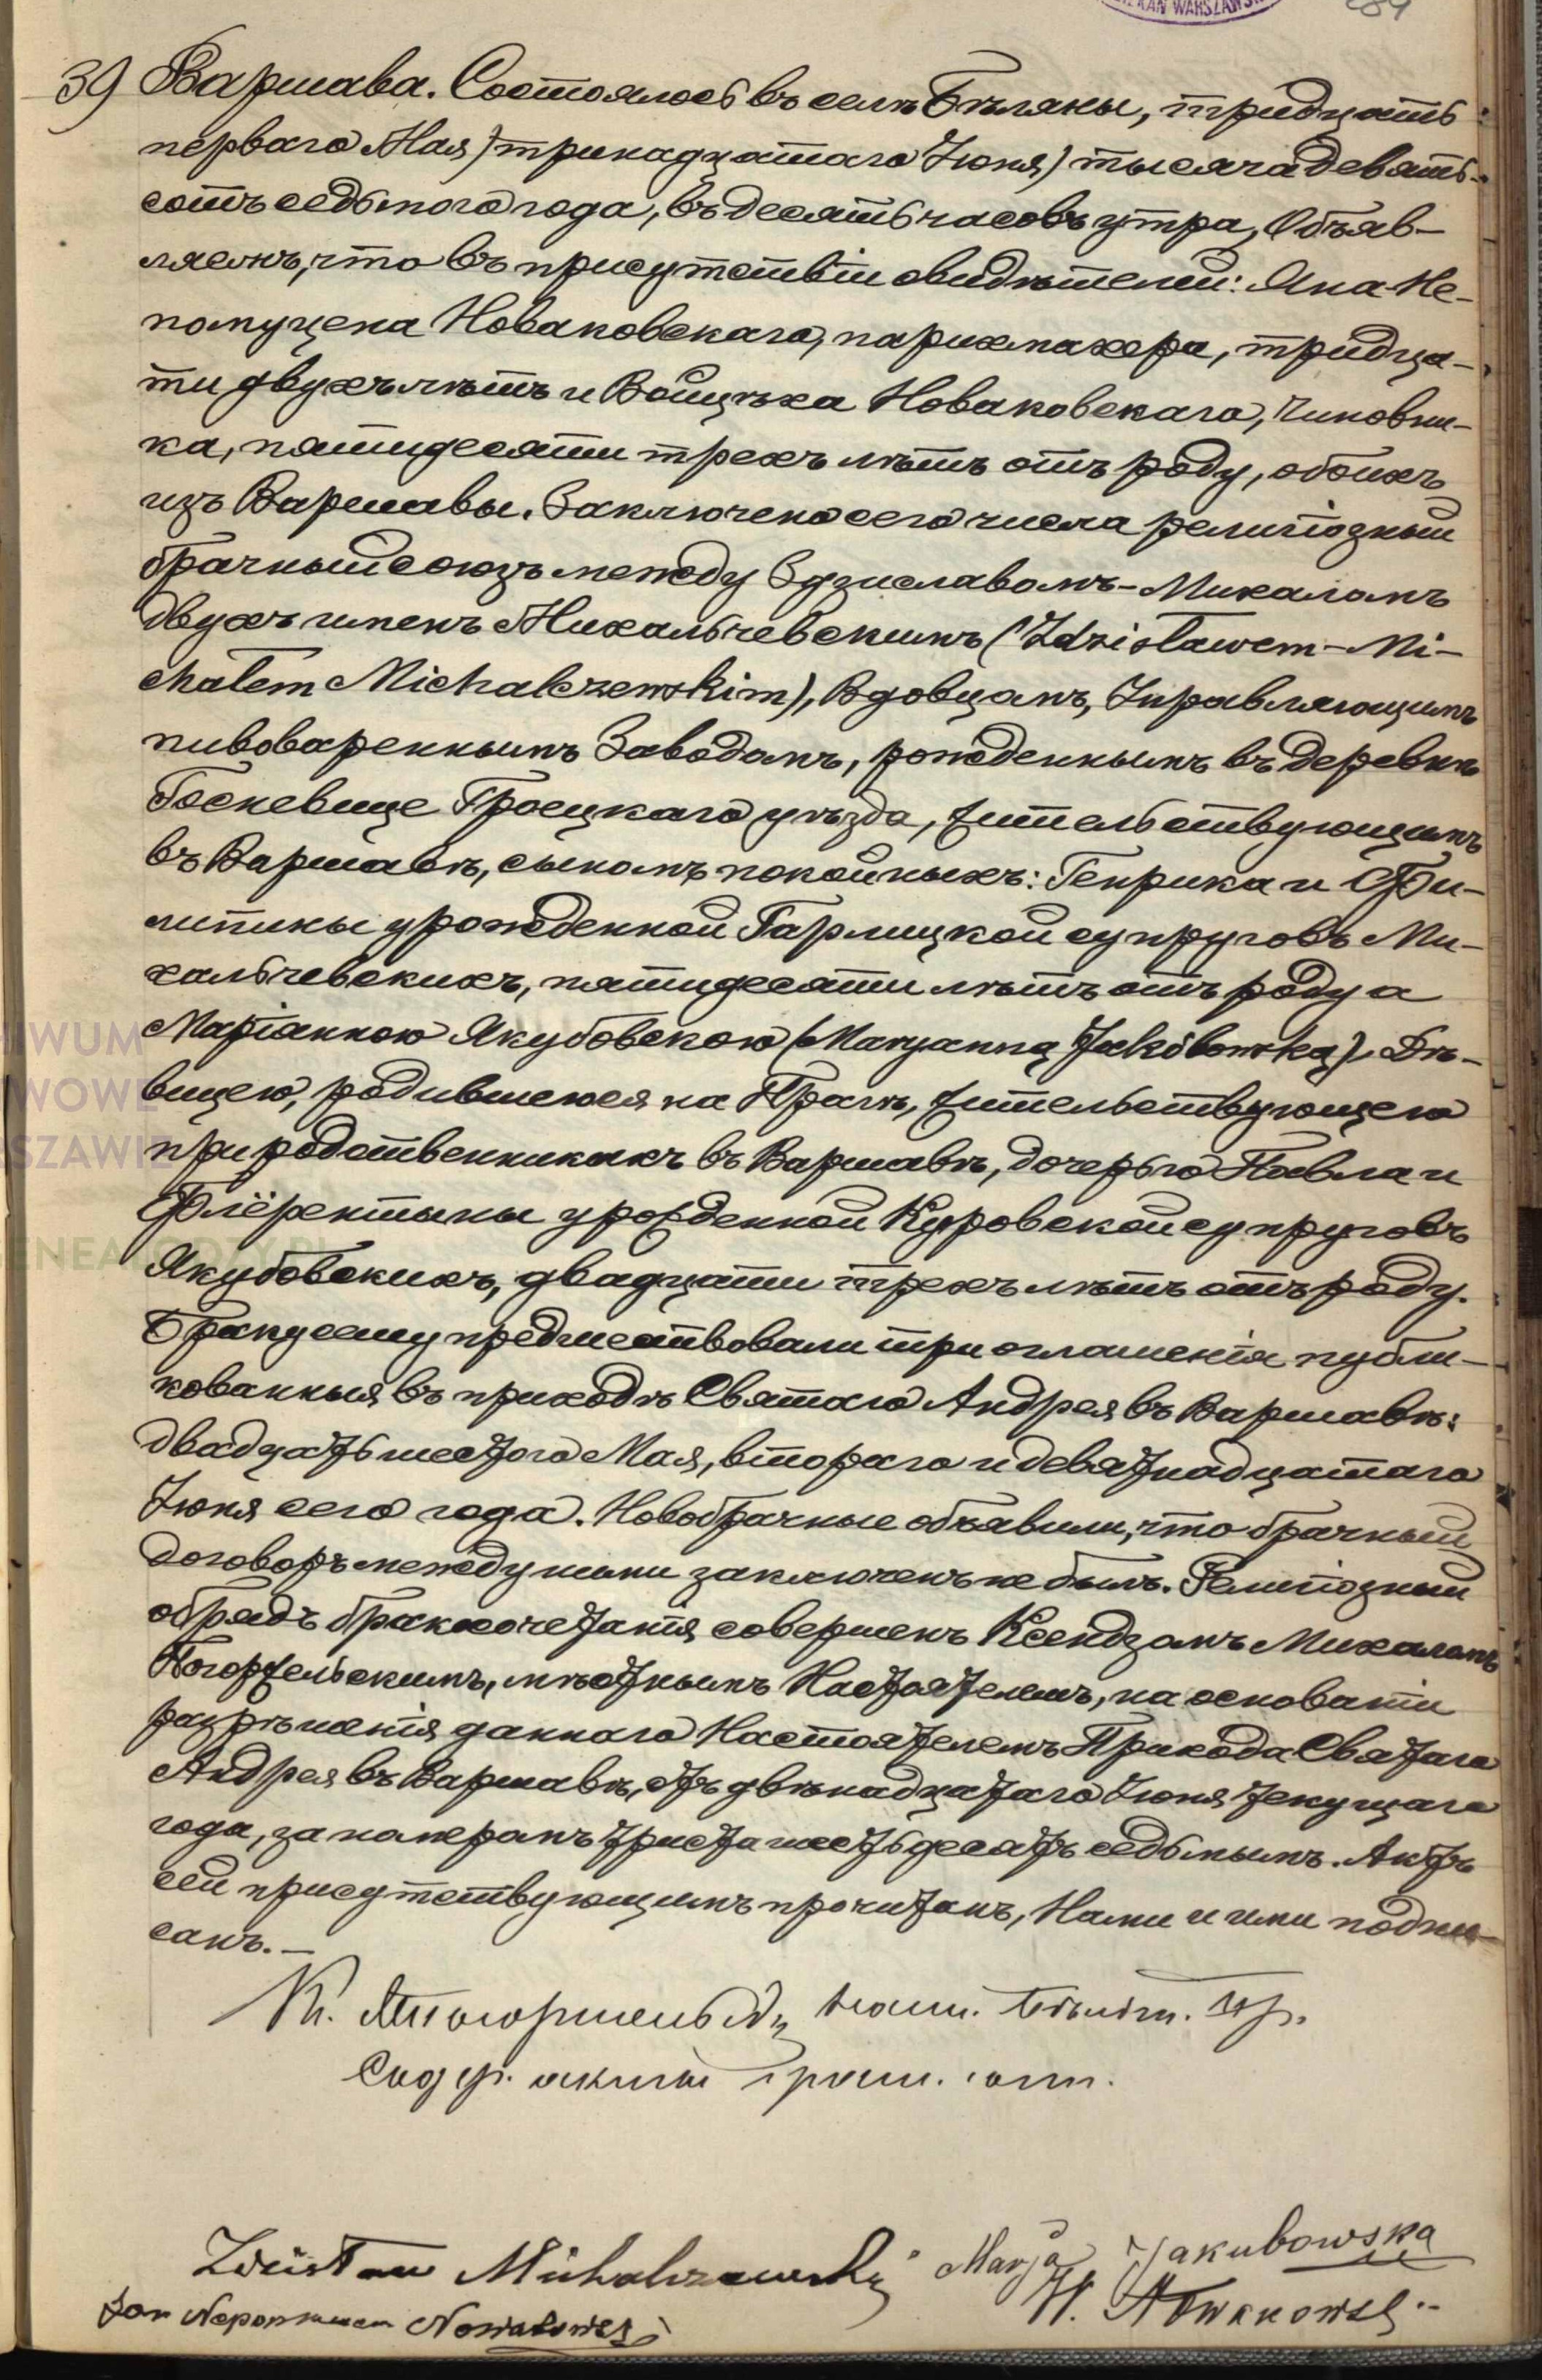 KAN WARSZAWSK
284
39 Варшава. Состоялось въ селѣ Бѣляны, тридцать
перваго Мая /тринадцатаго Іюня/ тысяча девять-
сотъ седьмого года, въ десять часовъ утра, Объяв-
ляемъ, что въ присутствіи свидѣтелей: Яна-Не-
помуцена Новаковскаго, парихмахера, тридца-
ти двухъ лѣтъ и Войцѣха Новаковскаго, Чиновни-
ка, пятидесяти трехъ лѣтъ отъ роду, обоихъ
изъ Варшавы. Заключено сего числа религіозный
брачный союзъ между Здзиславомъ-Михаломъ
двухъ именъ Михальчевскимъ (Zdzisławem-Mi-
chałem Michalczewskim), Вдовцамъ, Управляющимъ
пивовареннымъ Заводомъ, рожденнымъ въ деревнѣ
Госневице Гроецкаго уѣзда, жительствующимъ
въ Варшавѣ, сыномъ покойныхъ: Генрика и Фи-
липины урожденной Гарлицкой супруговъ Ми-
хальчевскихъ, пятидесяти лѣтъ отъ роду а
Маріанною Якубовскою (Maryanną Jakóbowską), Дѣ-
вицею, родившеюся на Прагѣ, жительствующею
при родственникахъ въ Варшавѣ, дочерью Павла и
Флёрентыны урожденной Куровской супруговъ
Якубовскихъ, двадцати трехъ лѣтъ отъ роду.
Браку сему предшествовали три оглашенія публи-
кованныя въ приходѣ Святаго Андрея въ Варшавѣ:
двадцать шестого Мая, втораго и девятнадцатаго
Іюня сего года. Новобрачные объявили, что брачный
договоръ между ними заключенъ не былъ. Религіозный
обрядъ бракосочетанія совершенъ Ксендзамъ Михаломъ
Погоржельскимъ, мѣстнымъ Настоятелемъ, на основаніи
разрѣшенія даннаго Настоятелемъ Прихода Святаго
Андрея въ Варшавѣ, отъ двѣнадцатаго Іюня текущаго
года, за номерамъ триста шестьдесятъ седьмымъ. Актъ
сей присутствующимъ прочитанъ, Нами и ими подпи-
санъ.—
Кс. М Погоржельскій, наст. Бѣлян. пр.
Сод. акты граж. сост.
Zdzisław Michalczewski Marja Jakubowska
Jan Nepomucen Nowakowski W. Nowakowski